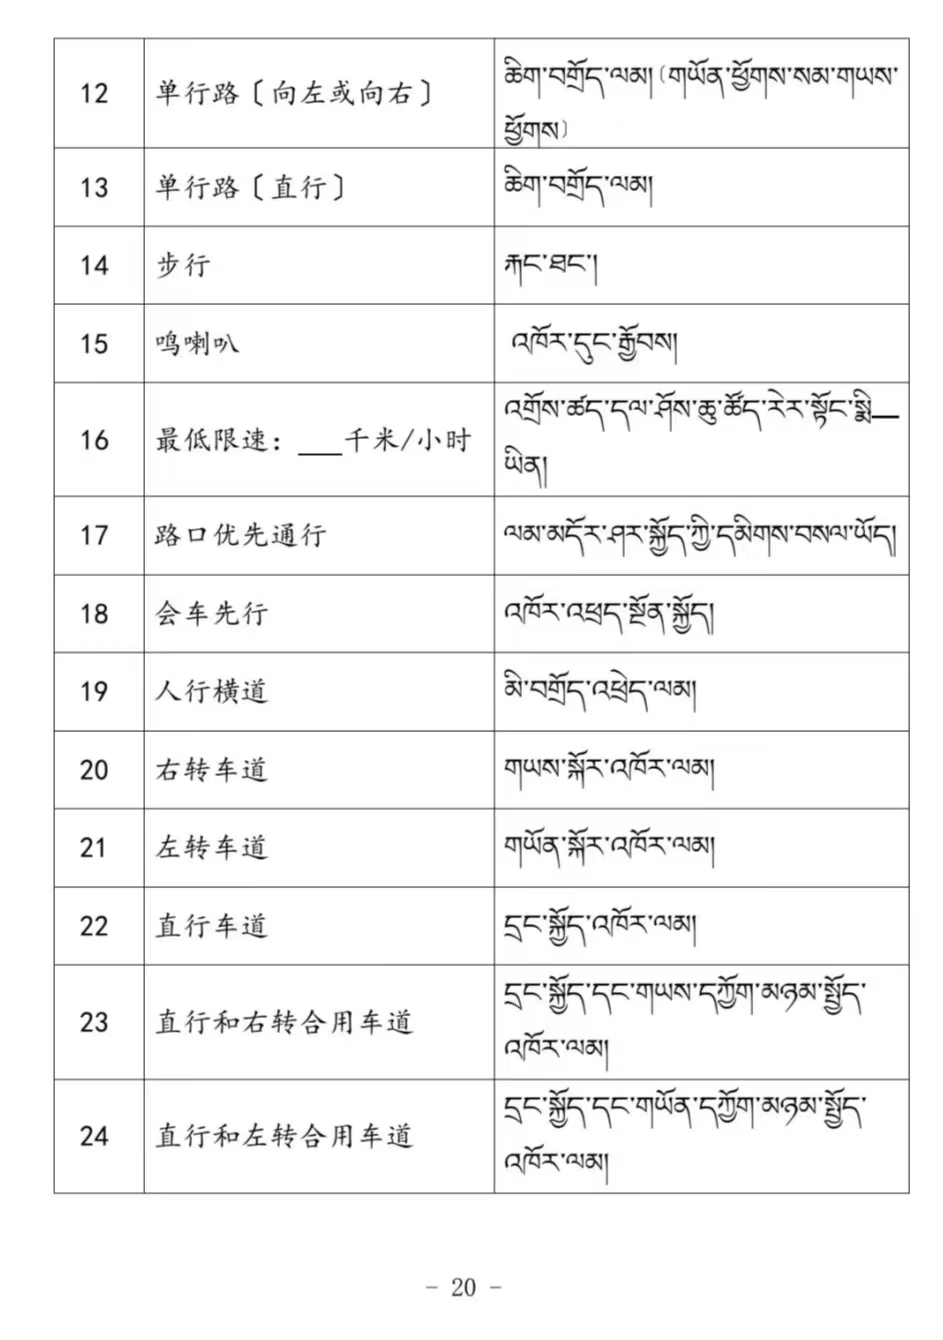 12 单行路〔向左或向右〕 ཆིག་བགྲོད་ལམ། (གཡོན་ཕྱོགས་སམ་གཡས་
ཕྱོགས)
13 单行路〔直行〕 ཆིག་བགྲོད་ལམ།
14 步行 རྐང་ཐང་།
15 鸣喇叭 འཁོར་དུང་རྒྱོབས།
16 最低限速：___千米/小时 འགྲོས་ཚད་དལ་ཤོས་ཆུ་ཚོད་རེར་སྟོང་སྨི__
ཡིན།
17 路口优先通行 ལམ་མདོར་ཤར་སྐྱོད་ཀྱི་དམིགས་བསལ་ཡོད།
18 会车先行 འཁོར་འཕྲད་སྔོན་སྐྱོད།
19 人行横道 མི་བགྲོད་འཕྲེད་ལམ།
20 右转车道 གཡས་སྐོར་འཁོར་ལམ།
21 左转车道 གཡོན་སྐོར་འཁོར་ལམ།
22 直行车道 དྲང་སྐྱོད་འཁོར་ལམ།
23 直行和右转合用车道 དྲང་སྐྱོད་དང་གཡས་དཀྱོག་མཉམ་སྤྱོད་
འཁོར་ལམ།
24 直行和左转合用车道 དྲང་སྐྱོད་དང་གཡོན་དཀྱོག་མཉམ་སྤྱོད་
འཁོར་ལམ།
- 20 -